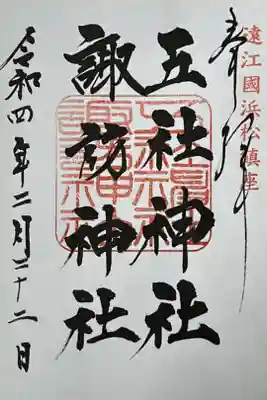 遠江國浜松鎮座
奉拝
五社神社
諏訪神社
令和四年二月二十二日